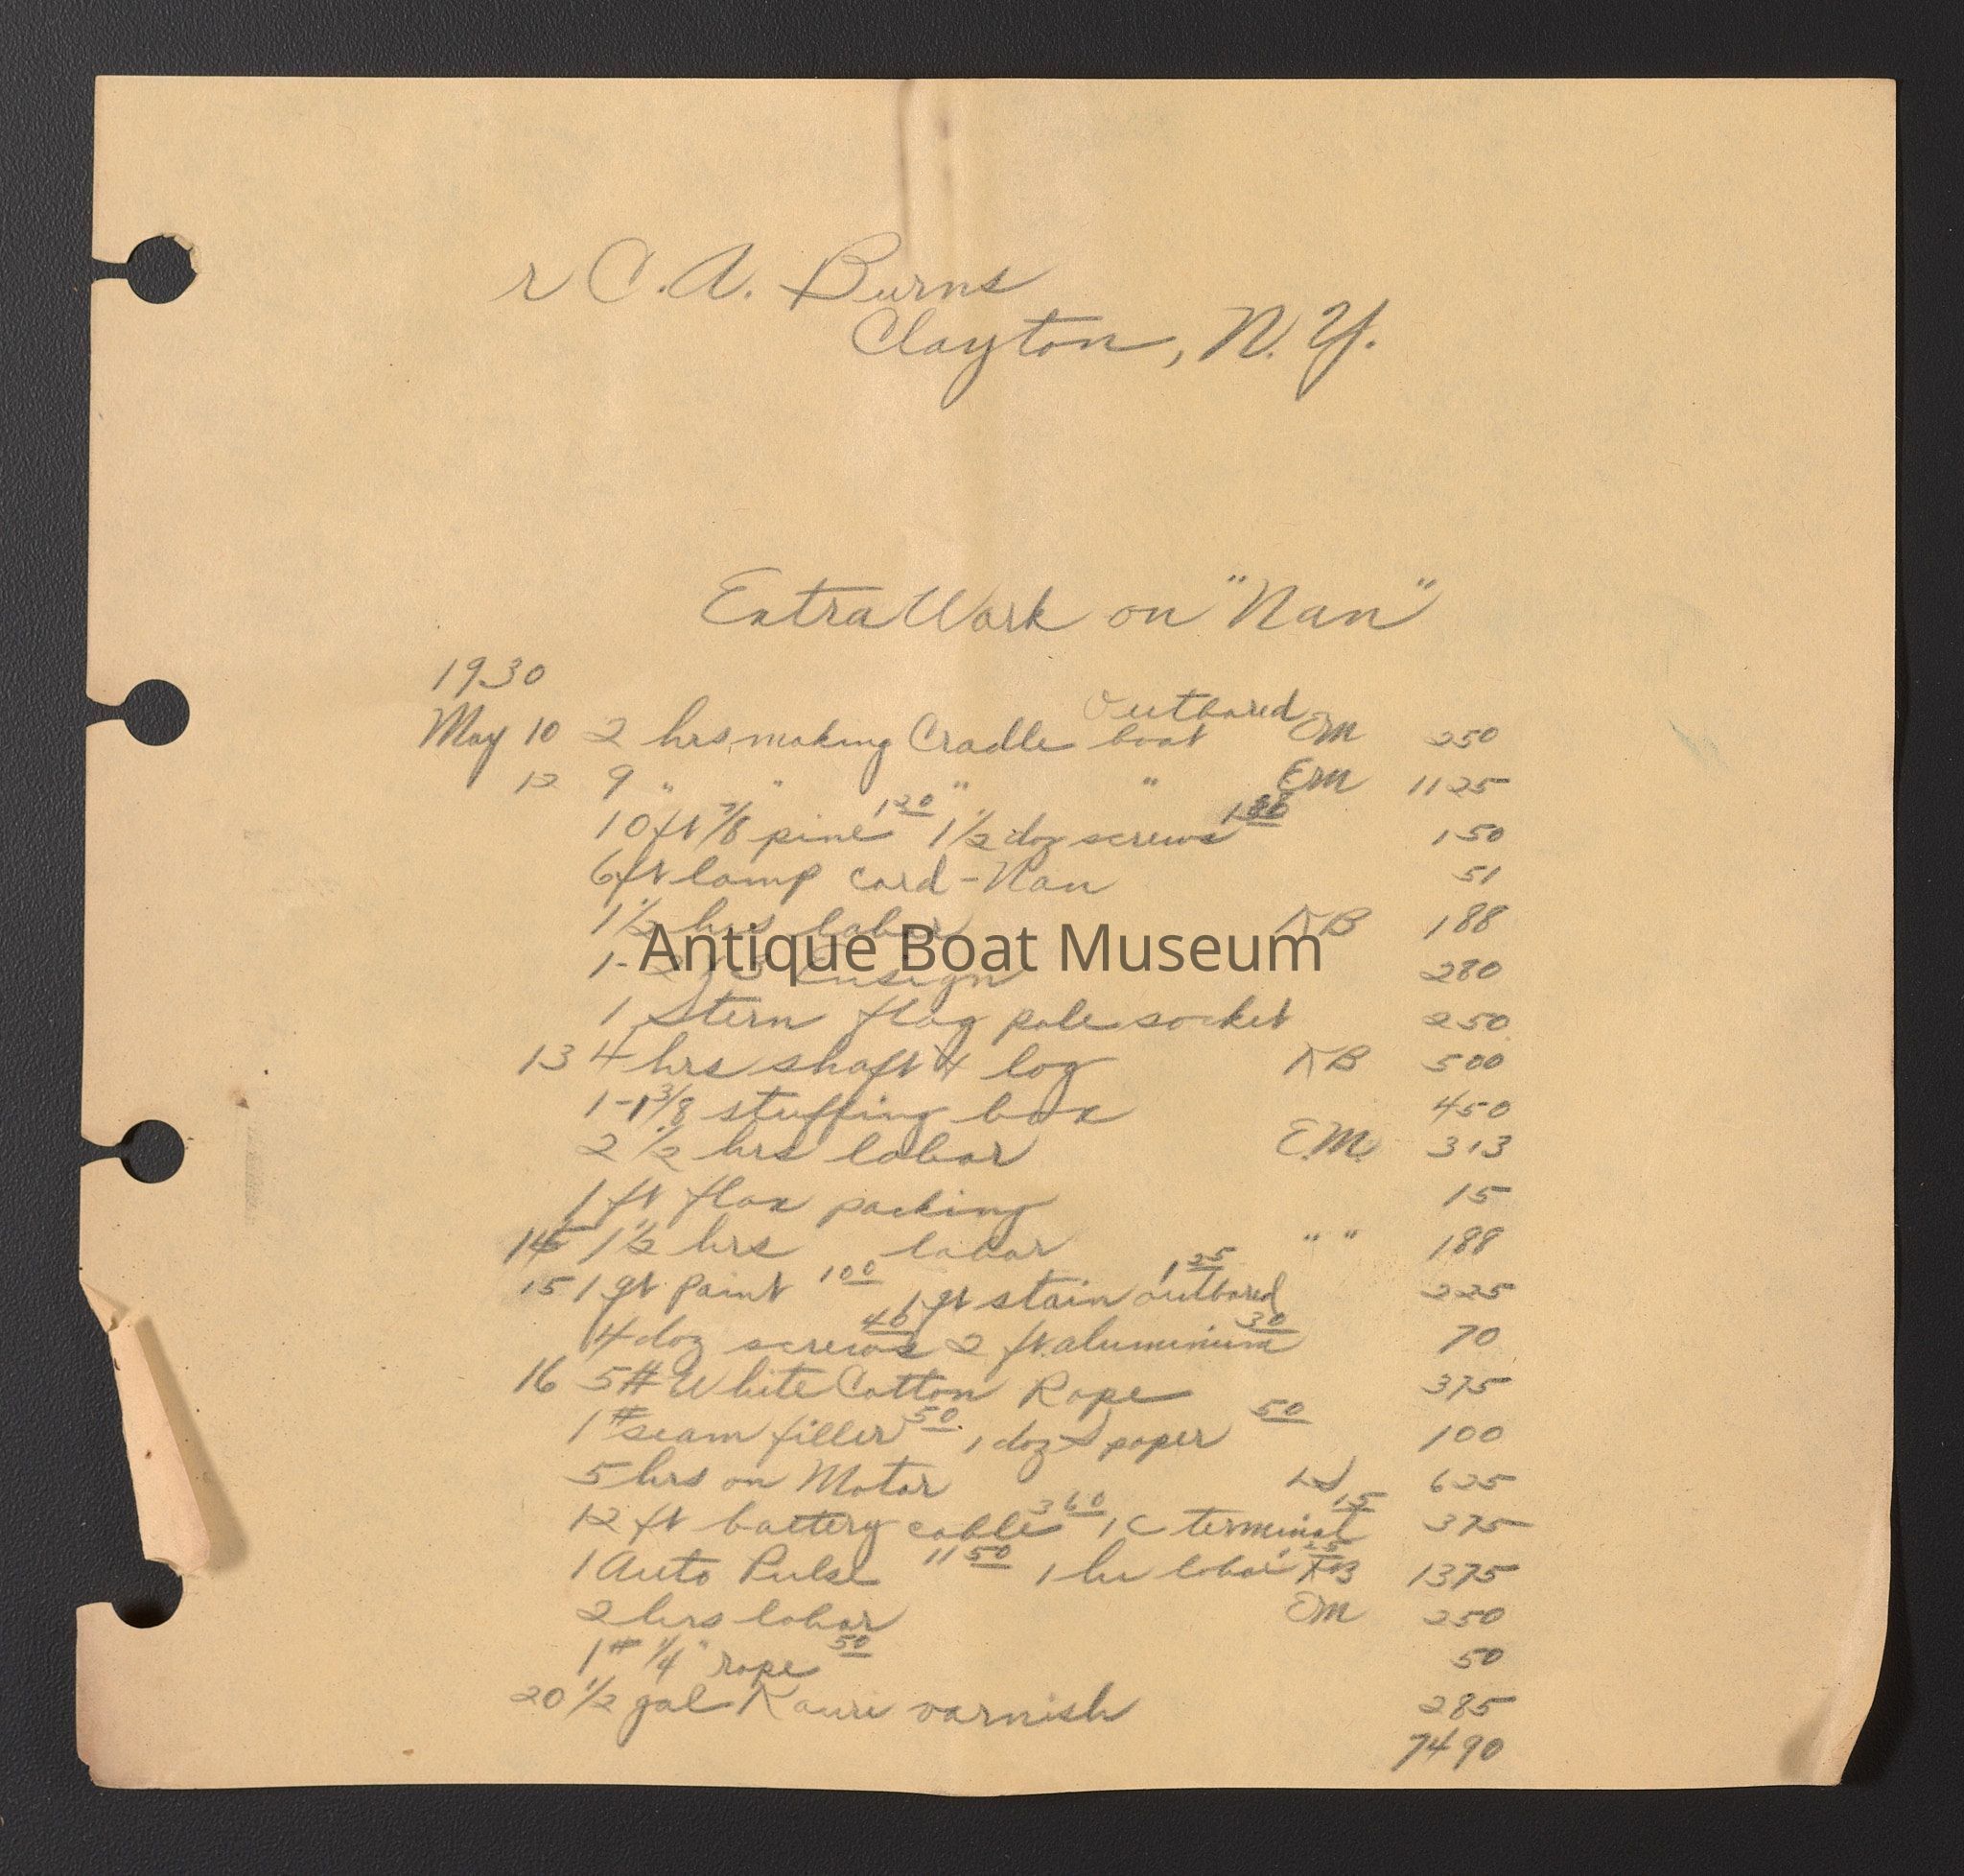 r C. A. Burns
Clayton, N. Y.
Extra Work on "Nan"
1930
May 10 2 hrs making Cradle outbored boat EM 250
12 9 " " " " EM 1125
10 ft 7/8 pine 120 1 1/2 doz screws 150
6 ft lamp cord - Nan 51
1 1/2 hrs labor KB 188
Antique Boat Museum
1 - 2 x 3 Ensign 280
1 Stern flag pole socket 250
13 4 hrs shaft & log KB 500
1 - 1 3/8 stuffing box 450
2 1/2 hrs labor E.M. 313
1 ft flax packing 15
14 1 1/2 hrs labor " " 188
15 1 qt paint 100 1 qt stain outbored 125 225
4 doz screws 40 2 ft aluminium 30 70
16 5# White Cotton Rope 375
1# seam filler 50 1 doz S paper 50 100
5 hrs on Motor 625
12 ft battery cable 360 1 C terminal 15 375
1 Auto Pulse 1150 1 hr labor KB 125 1375
2 hrs labor EM 250
1# 1/4" rope 50 50
20 1/2 gal Kauri varnish 285
7490